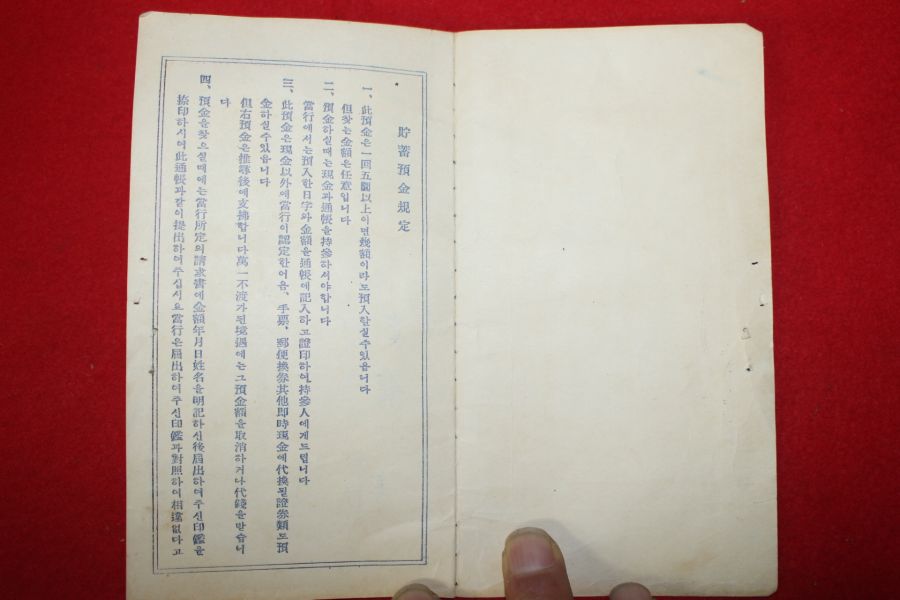 貯蓄預金規定
一、此預金은一回五圜以上이면幾額이라도預入할실수있읍니다
但찾는金額은任意입니다
二、預金하실때는現金과通帳을持參하셔야합니다
當行에서는預入한日字와金額을通帳에記入하고證印하여持參人에게드립니다
三、此預金은現金以外에當行이認定한어음、手票、郵便換券其他卽時現金에代換될證券類도預
金하실수있읍니다
但右預金은推尋後에支拂합니다萬一不渡가된境遇에는그預金額을取消하거나代錢을받습니
다
四、預金을찾으실때에는當行所定의請求書에金額年月日姓名을明記하신後屆出하여주신印鑑을
捺印하시여此通帳과같이提出하여주십시요當行은屆出하여주신印鑑과對照하여相違없다고